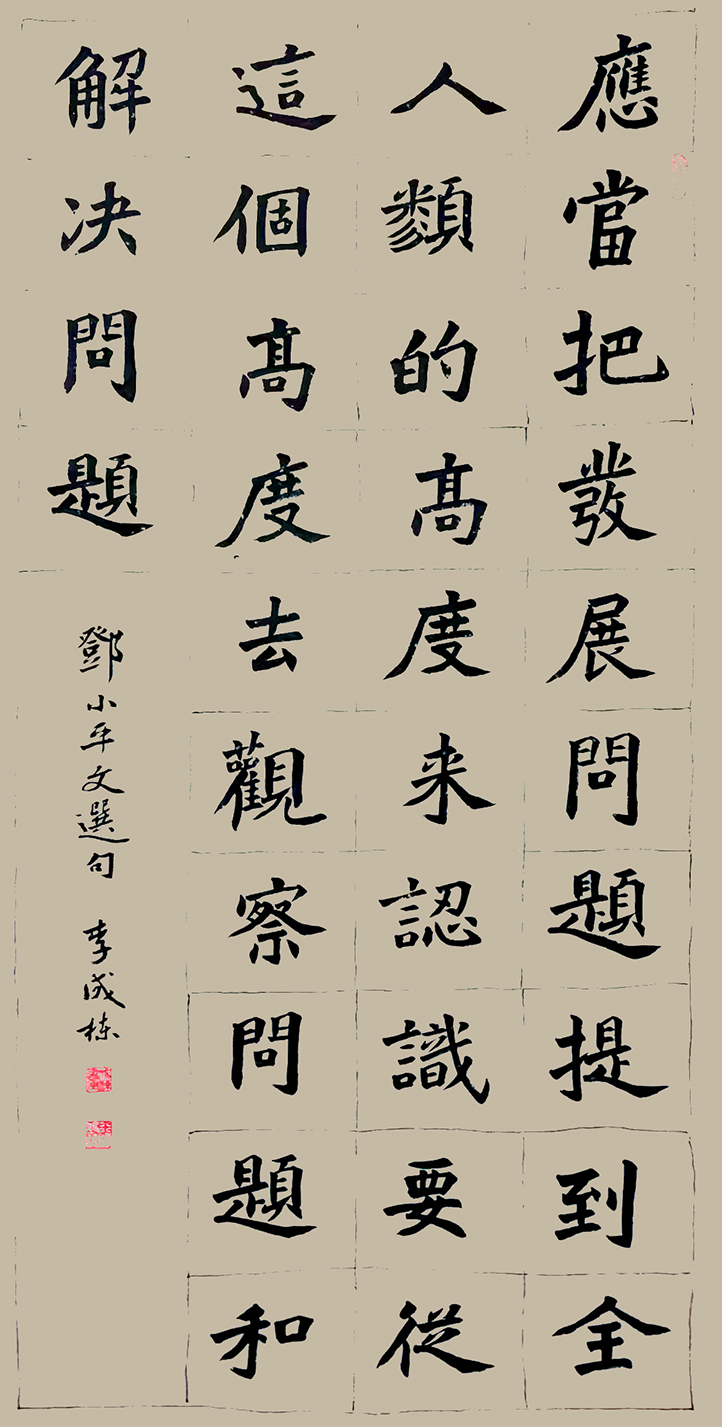 應當把發展問題提到全
人類的高度来認識要從
這個高度去觀察問題和
解决問題
鄧小平文選句 李成栋